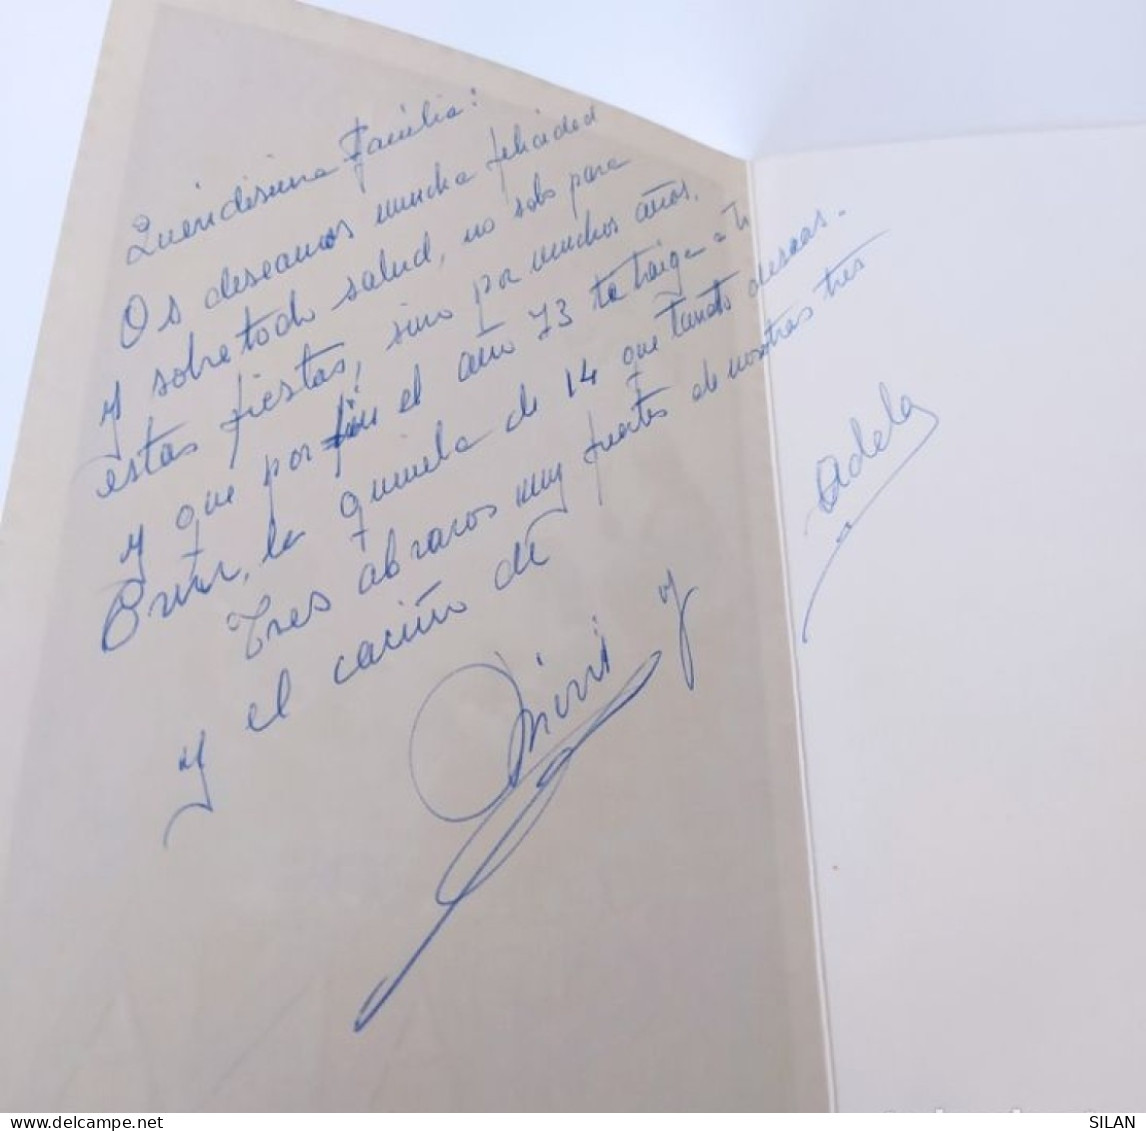 Queridisima Familia:
Os deseamos mucha felicidad
y sobre todo salud, no solo para
estas fiestas, sino por muchos años,
y que por fin el año 73 te traiga a ti
la quiniela de 14 que tanto deseas.
Tres abrazos muy fuertes de nosotras tres
y el cariño de
y
y
Adela
SILAN